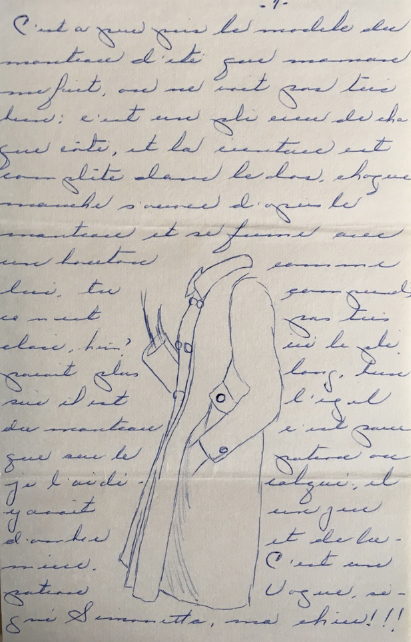 -9-
C'est a peu près le modèle du
manteau d'été que maman
me fait, on ne voit pas très
bien: c'est un pli creux de cha
que côté, et la ceinture est
complète dans le dos, chaque
manche s'ouvre d'après le
manteau et se ferme avec
un bouton comme
lui, tu comprends
ce n'est pas très
clair, hein? ici le pli
parait plus long, bien
sûr il est l'égal
du manteau c'est parce
que sur le patron où
je l'ai dé- calqué, il
y avait un jeu
d'ombre et de lu-
mière. C'est un
patron Vogue, si-
gné Simonetta, ma chère!!!